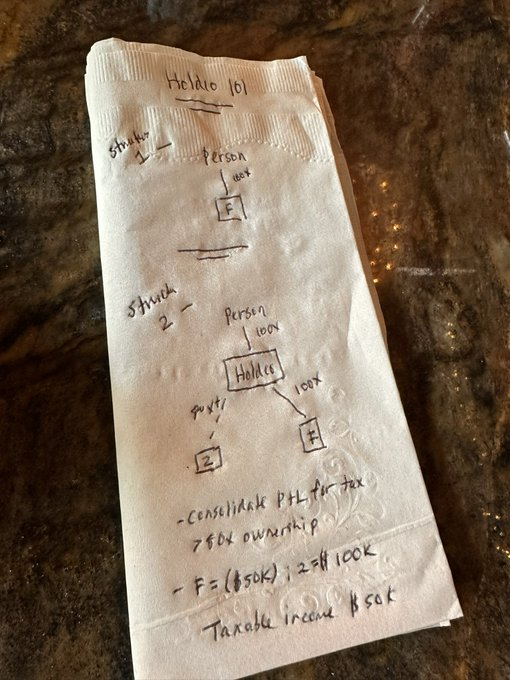 Holdco 101
Structure
1 -
Person
100%
F
2 -
Person
100%
Holdco
100%
2
F
- Consolidate P+L for tax
>80% ownership
- F = ($50K) ; 2 = $100K
Taxable income $50K